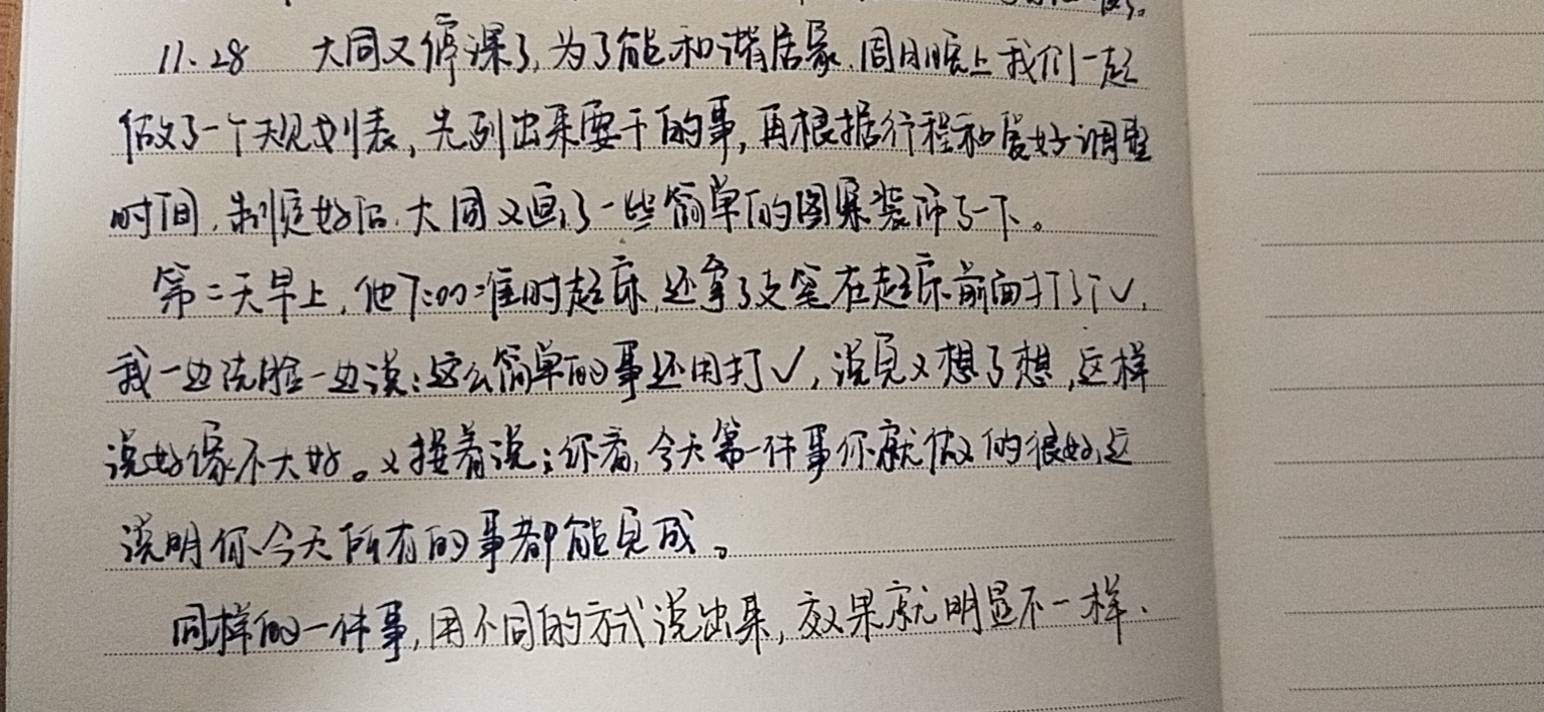 11.28 大同又停课了,为了能和谐居家.周日晚上我们一起
做了一个规划表,先列出来要干的事,再根据行程和爱好调整
时间,制定好后.大同又画了一些简单的图案装饰了一下。
第二天早上,他7:00准时起床,还拿了支笔在起床前面打了个√,
我一边洗脸一边说:这么简单的事还用打√,说完又想了想,这样
说好像不大好。又接着说:你看,今天第一件事你就做的很好,这
说明你今天所有的事都能完成。
同样的一件事,用不同的方式说出来,效果就明显不一样.